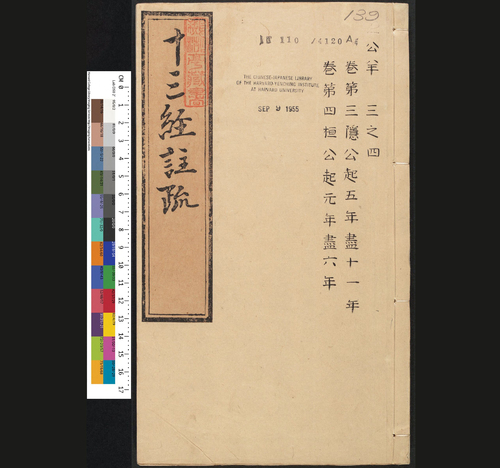 139
公羊 三之四
卷第三隱公起五年盡十一年
卷第四桓公起元年盡六年
THE CHINESE-JAPANESE LIBRARY
OF THE HARVARD-YENCHING INSTITUTE
AT HARVARD UNIVERSITY
SEP 9 1955
十三經註疏
CM 0 1 2 3 4 5 6 7 8 9 10 11 12 13 14 15 16 17